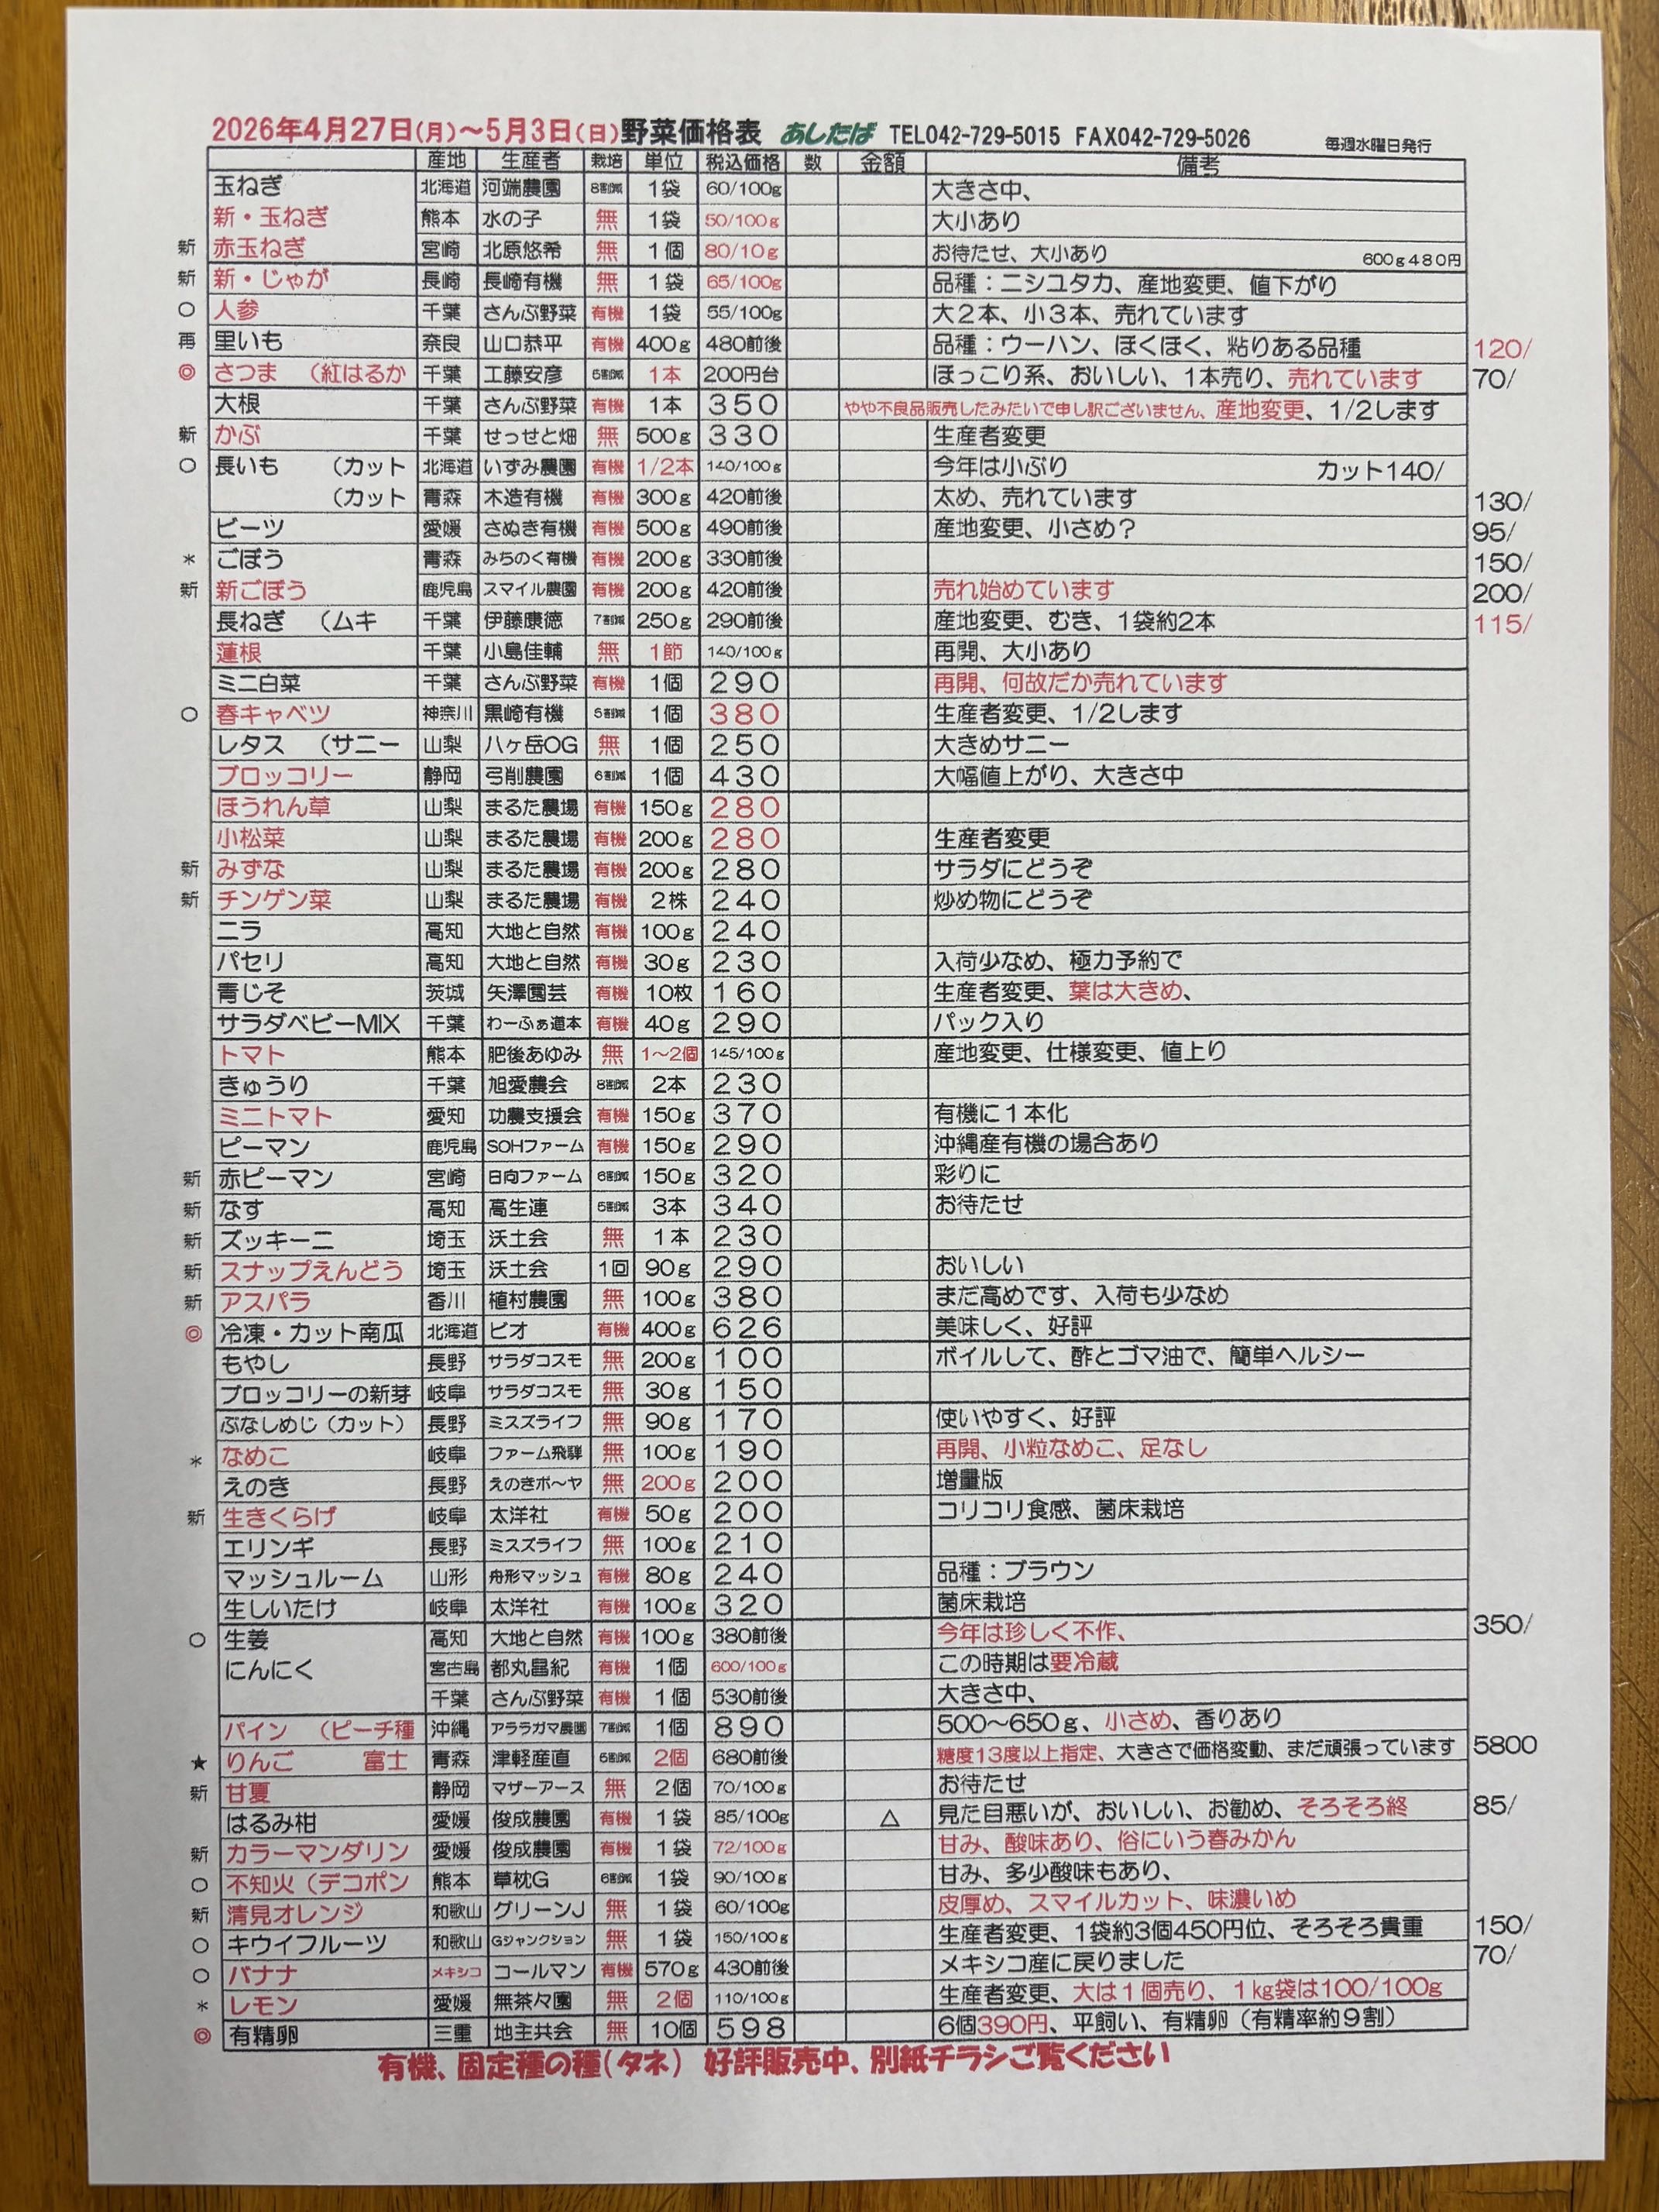 2026年4月27日(月)～5月3日(日)野菜価格表 あしたば TEL042-729-5015 FAX042-729-5026 毎週水曜日発行
産地 生産者 栽培 単位 税込価格 数 金額 備考
玉ねぎ 北海道 河端農園 8割減 1袋 60/100g 大きさ中、
新・玉ねぎ 熊本 水の子 無 1袋 50/100g 大小あり
新 赤玉ねぎ 宮崎 北原悠希 無 1個 80/10g お待たせ、大小あり 600g480円
新 新・じゃが 長崎 長崎有機 無 1袋 65/100g 品種：ニシユタカ、産地変更、値下がり
○ 人参 千葉 さんぶ野菜 有機 1袋 55/100g 大2本、小3本、売れています
再 里いも 奈良 山口恭平 有機 400g 480前後 品種：ウーハン、ほくほく、粘りある品種 120/
◎ さつま （紅はるか 千葉 工藤安彦 5割減 1本 200円台 ほっこり系、おいしい、1本売り、売れています 70/
大根 千葉 さんぶ野菜 有機 1本 350 やや不良品販売したみたいで申し訳ございません、産地変更、1/2します
新 かぶ 千葉 せっせと畑 無 500g 330 生産者変更
○ 長いも （カット 北海道 いずみ農園 有機 1/2本 140/100g 今年は小ぶり カット140/
（カット 青森 木造有機 有機 300g 420前後 太め、売れています 130/
ビーツ 愛媛 さぬき有機 有機 500g 490前後 産地変更、小さめ？ 95/
* ごぼう 青森 みちのく有機 有機 200g 330前後 150/
新 新ごぼう 鹿児島 スマイル農園 有機 200g 420前後 売れ始めています 200/
長ねぎ （ムキ 千葉 伊藤康徳 7割減 250g 290前後 産地変更、むき、1袋約2本 115/
蓮根 千葉 小島佳輔 無 1節 140/100g 再開、大小あり
ミニ白菜 千葉 さんぶ野菜 有機 1個 290 再開、何故だか売れています
○ 春キャベツ 神奈川 黒崎有機 5割減 1個 380 生産者変更、1/2します
レタス （サニー 山梨 八ヶ岳OG 無 1個 250 大きめサニー
ブロッコリー 静岡 弓削農園 6割減 1個 430 大幅値上がり、大きさ中
ほうれん草 山梨 まるた農場 有機 150g 280
小松菜 山梨 まるた農場 有機 200g 280 生産者変更
新 みずな 山梨 まるた農場 有機 200g 280 サラダにどうぞ
新 チンゲン菜 山梨 まるた農場 有機 2株 240 炒め物にどうぞ
ニラ 高知 大地と自然 有機 100g 240
パセリ 高知 大地と自然 有機 30g 230 入荷少なめ、極力予約で
青じそ 茨城 矢澤園芸 有機 10枚 160 生産者変更、葉は大きめ、
サラダベビーMIX 千葉 わーふぁ道本 有機 40g 290 パック入り
トマト 熊本 肥後あゆみ 無 1～2個 145/100g 産地変更、仕様変更、値上り
きゅうり 千葉 旭愛農会 8割減 2本 230
ミニトマト 愛知 功農支援会 有機 150g 370 有機に1本化
ピーマン 鹿児島 SOHファーム 有機 150g 290 沖縄産有機の場合あり
新 赤ピーマン 宮崎 日向ファーム 6割減 150g 320 彩りに
新 なす 高知 高生連 5割減 3本 340 お待たせ
新 ズッキーニ 埼玉 沃土会 無 1本 230
新 スナップえんどう 埼玉 沃土会 1回 90g 290 おいしい
新 アスパラ 香川 植村農園 無 100g 380 まだ高めです、入荷も少なめ
◎ 冷凍・カット南瓜 北海道 ビオ 有機 400g 626 美味しく、好評
もやし 長野 サラダコスモ 無 200g 100 ボイルして、酢とゴマ油で、簡単ヘルシー
ブロッコリーの新芽 岐阜 サラダコスモ 無 30g 150
ぶなしめじ（カット） 長野 ミスズライフ 無 90g 170 使いやすく、好評
* なめこ 岐阜 ファーム飛騨 無 100g 190 再開、小粒なめこ、足なし
えのき 長野 えのきボ～ヤ 無 200g 200 増量版
新 生きくらげ 岐阜 太洋社 有機 50g 200 コリコリ食感、菌床栽培
エリンギ 長野 ミスズライフ 無 100g 210
マッシュルーム 山形 舟形マッシュ 有機 80g 240 品種：ブラウン
生しいたけ 岐阜 太洋社 有機 100g 320 菌床栽培
○ 生姜 高知 大地と自然 有機 100g 380前後 今年は珍しく不作、 350/
にんにく 宮古島 都丸昌紀 有機 1個 600/100g この時期は要冷蔵
千葉 さんぶ野菜 有機 1個 530前後 大きさ中、
パイン （ピーチ種 沖縄 アララガマ農園 7割減 1個 890 500～650g、小さめ、香りあり
★ りんご 富士 青森 津軽産直 6割減 2個 680前後 糖度13度以上指定、大きさで価格変動、まだ頑張っています 5800
新 甘夏 静岡 マザーアース 無 2個 70/100g お待たせ
はるみ柑 愛媛 俊成農園 有機 1袋 85/100g △ 見た目悪いが、おいしい、お勧め、そろそろ終 85/
新 カラーマンダリン 愛媛 俊成農園 有機 1袋 72/100g 甘み、酸味あり、俗にいう春みかん
○ 不知火（デコポン 熊本 草枕G 6割減 1袋 90/100g 甘み、多少酸味もあり、
新 清見オレンジ 和歌山 グリーンJ 無 1袋 60/100g 皮厚め、スマイルカット、味濃いめ
○ キウイフルーツ 和歌山 Gジャンクション 無 1袋 150/100g 生産者変更、1袋約3個450円位、そろそろ貴重 150/
○ バナナ メキシコ コールマン 有機 570g 430前後 メキシコ産に戻りました 70/
* レモン 愛媛 無茶々園 無 2個 110/100g 生産者変更、大は1個売り、1kg袋は100/100g
◎ 有精卵 三重 地主共会 無 10個 598 6個390円、平飼い、有精卵（有精率約9割）
有機、固定種の種(タネ) 好評販売中、別紙チラシご覧ください